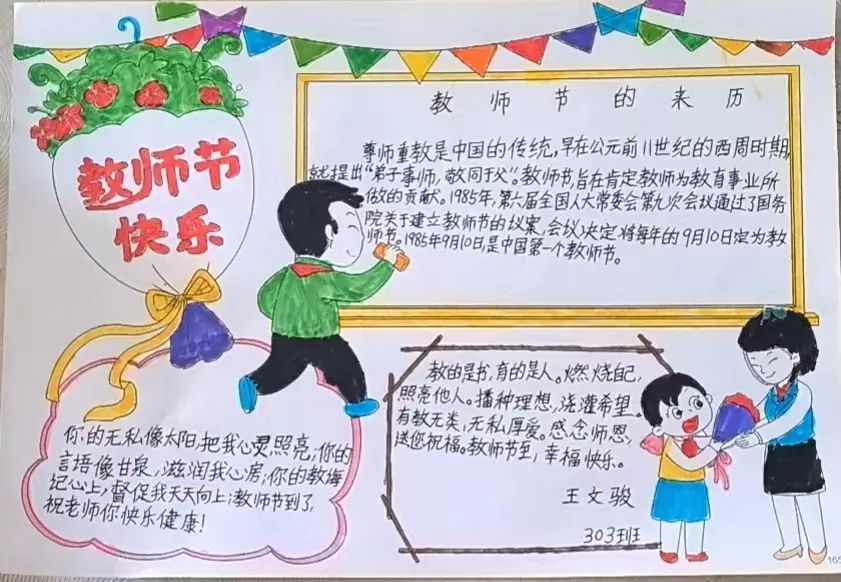 教师节
快乐
教师节的来历
尊师重教是中国的传统,早在公元前11世纪的西周时期,
就提出“弟子事师,敬同于父”。教师节,旨在肯定教师为教育事业所
做的贡献。1985年,第六届全国人大常委会第九次会议通过了国务
院关于建立教师节的议案,会议决定将每年的9月10日定为教
师节。1985年9月10日,是中国第一个教师节。
你的无私像太阳,把我心灵照亮;你的
言语像甘泉,滋润我心房;你的教诲
记心上,督促我天天向上;教师节到了,
祝老师你快乐健康!
教的是书,育的是人。燃烧自己,
照亮他人。播种理想,浇灌希望。
有教无类,无私厚爱。感念师恩,
送您祝福。教师节至,幸福快乐。
王文骏
303班
165